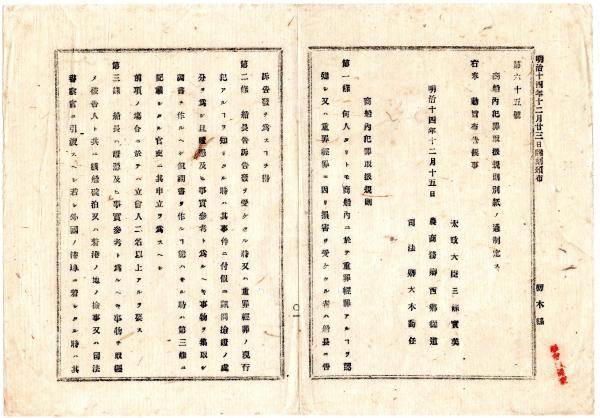 明治十四年十二月廿三日
栃木縣
第六十五號
商船內犯罪取扱規則別紙ノ通制定ス
右奉 勅旨布告候事
明治十四年十二月十五日
太政大臣三條實美
農商務卿西鄕從道
司法卿大木喬任
商船內犯罪取扱規則
第一條 何人タリトモ商船內ニ於テ重罪輕罪アルコヲ認
知シ又ハ重罪輕罪ニ因リ損害ヲ受ケタル者ハ船長ニ告
訴告發ヲ爲スコヲ得
第二條 船長告訴告發ヲ受ケタル時又ハ重罪輕罪ノ現行
犯アルコヲ知リタル時ハ其事件ニ付假ニ訊問檢證ノ處
分ヲ爲シ且證憑及ヒ事實參考ト爲ルヘキ事物ヲ集取シ
調書ヲ作ルヘシ但調書ヲ作ルコ能ハサル時ハ
記載シタル官吏ニ其申立ヲ爲スヘシ
前項ノ場合ニ於テハ立會人二名以上アルヲ要ス
第三條 船長ハ證憑及ヒ事實參考ト爲ルヘキ事物ヲ取纏
メ被告人ト共ニ該船碇泊又ハ着港ノ地ノ檢事又ハ司法
警察官ニ引渡スヘシ若シ外國ノ港埠ニ着シタル時ハ其
〇一